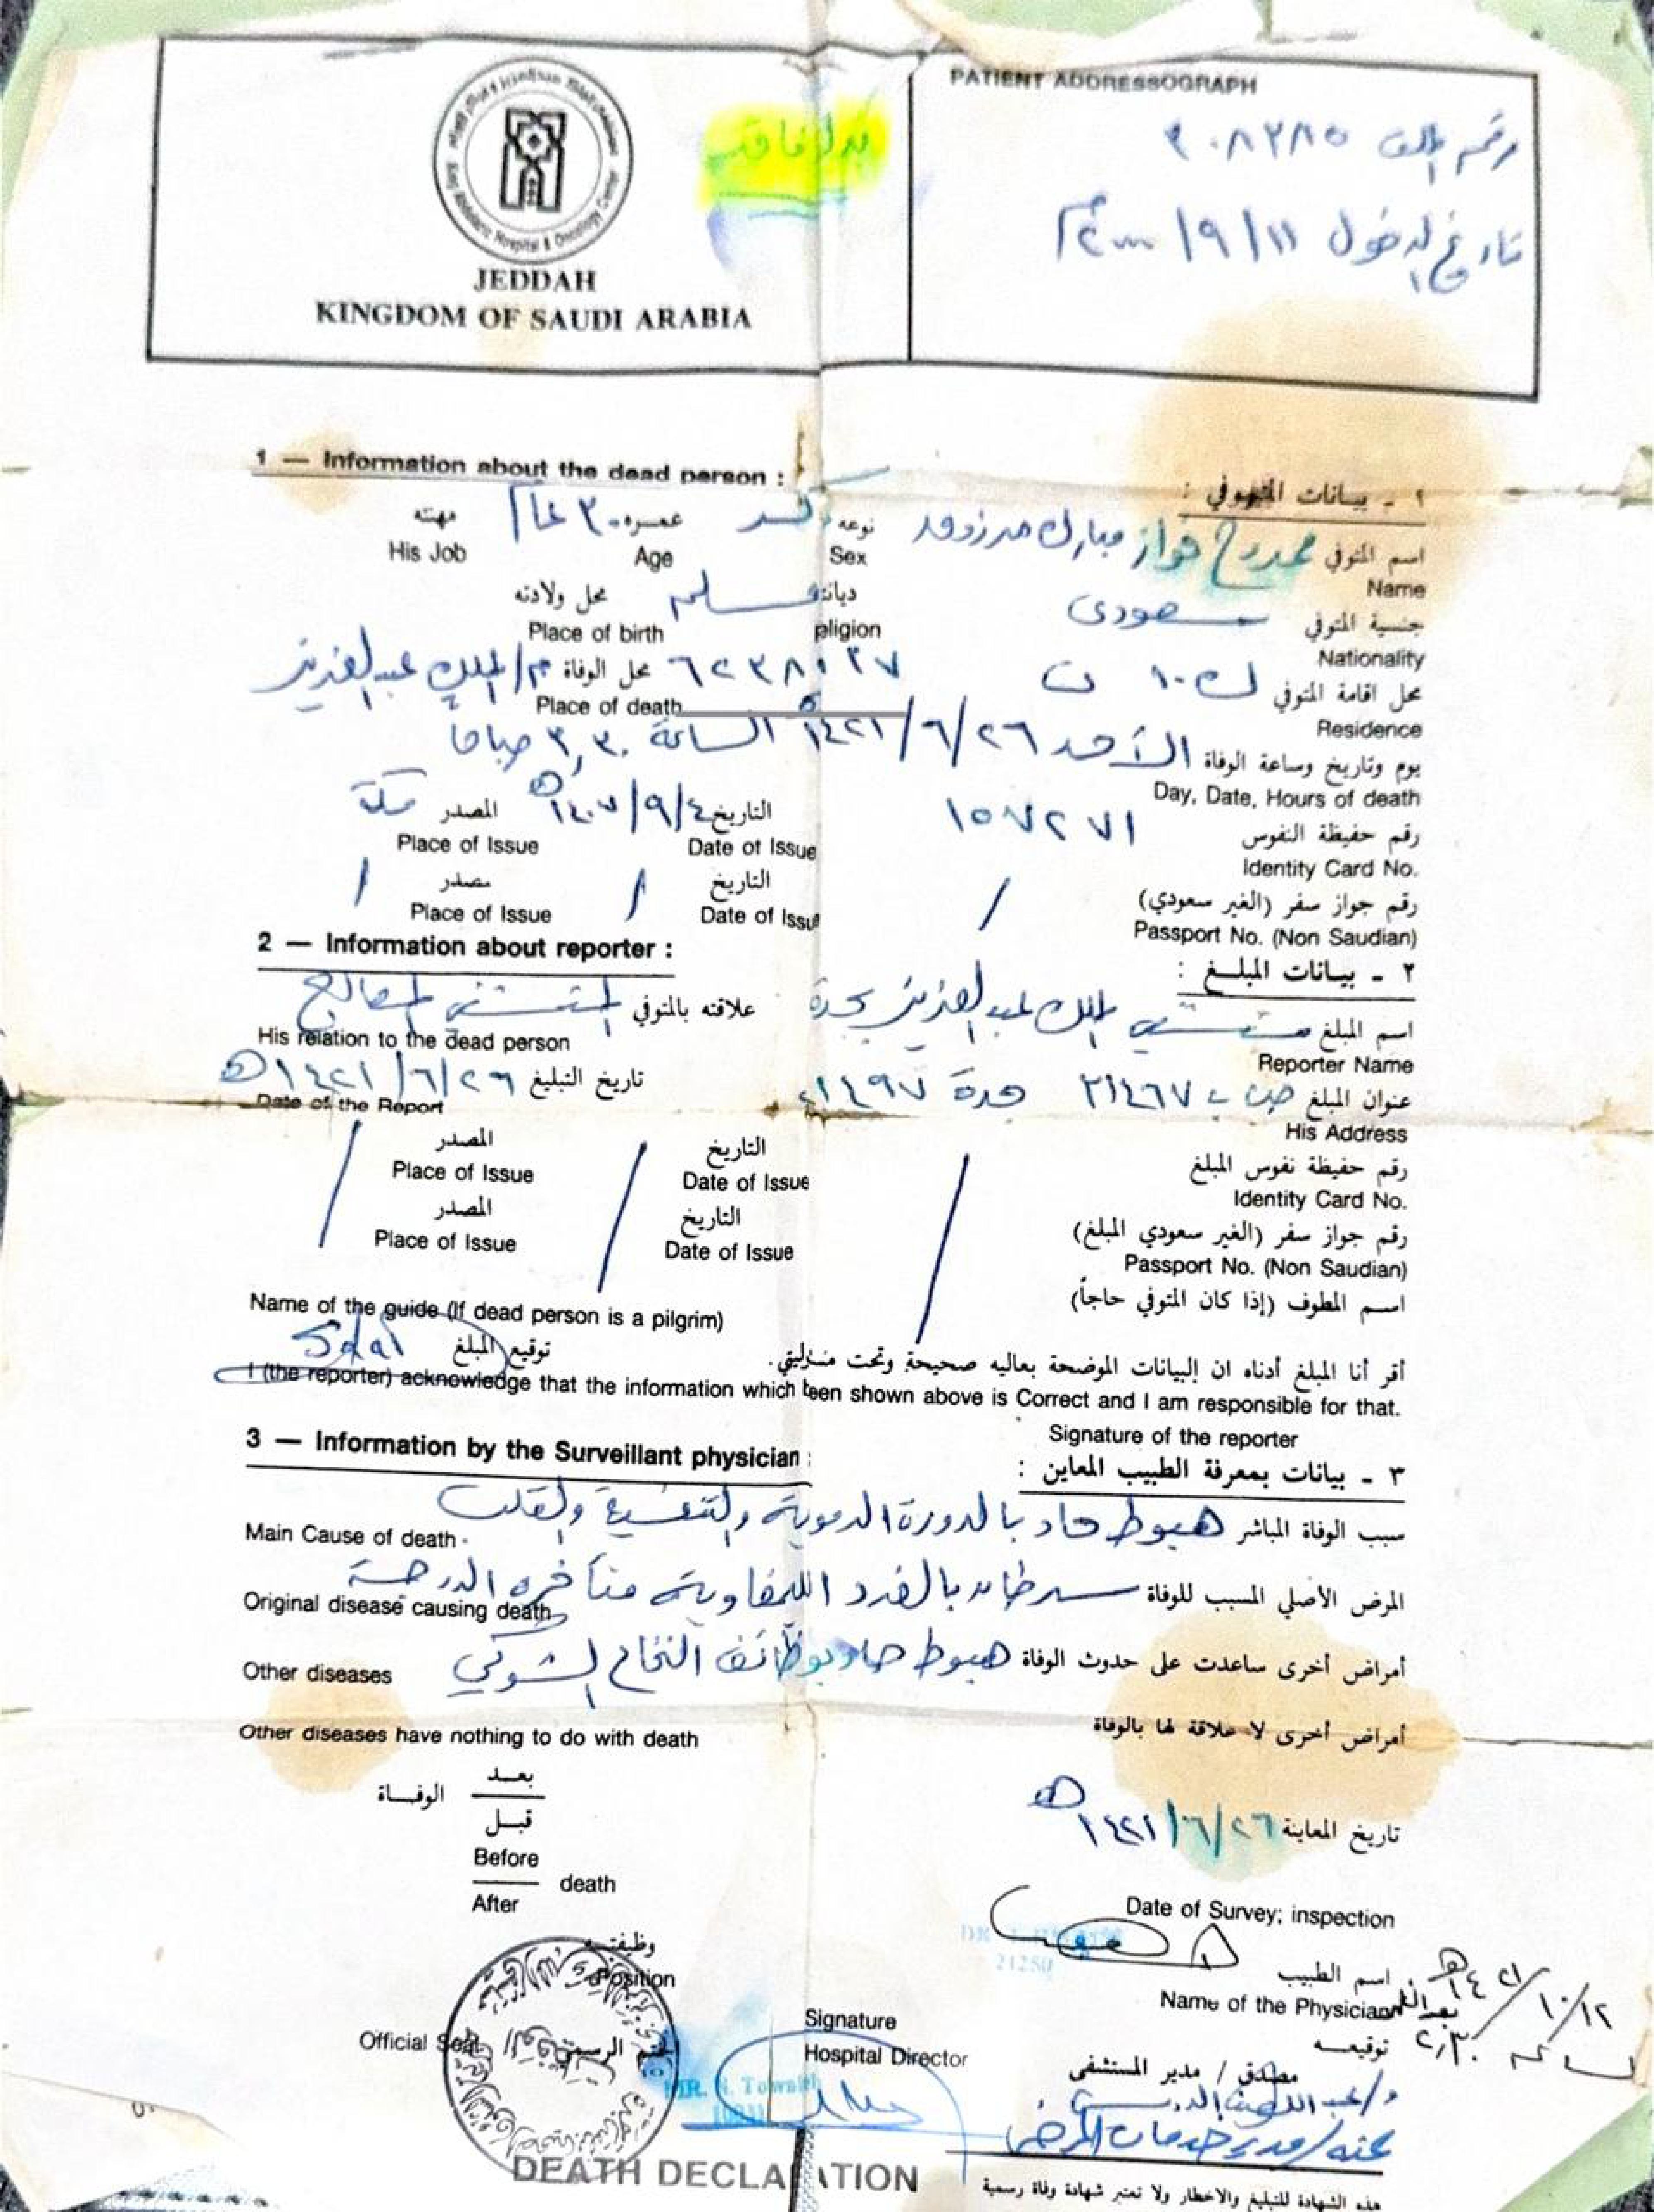 بدل فاقد
PATIENT ADDRESSOGRAPH
رقم الملف ٣٠٨٢٨٥
تاريخ الدخول ١١/٩/٢٠٠٠م
King Abdulaziz Hospital & Oncology Center
JEDDAH
KINGDOM OF SAUDI ARABIA
1 — Information about the dead person :
١ - بيانات المتوفي :
اسم المتوفي ممدوح فواز مبارك مرزوقد نوعه ذكر عمره ٣٠ عاماً مهنته
Name Sex Age His Job
جنسية المتوفي سعودى ديانته مسلم محل ولادته
Nationality eligion Place of birth
محل اقامة المتوفي ك ١٠ ت ٦٢٣٨٠٢٧ محل الوفاة م/الملك عبدالعزيز
Residence Place of death
يوم وتاريخ وساعة الوفاة الأحد ٢٦/٦/١٤٢١هـ الساعة ٣,٣٠ صباحا
Day, Date, Hours of death
رقم حفيظة النفوس ١٥٧٢٧١ التاريخ ٤/٩/١٤٠٧هـ المصدر مكة
Identity Card No. Date of Issue Place of Issue
رقم جواز سفر (الغير سعودي) / التاريخ / مصدر /
Passport No. (Non Saudian) Date of Issue Place of Issue
2 — Information about reporter :
٢ - بيانات المبلغ :
اسم المبلغ مستشفى الملك عبدالعزيز بجدة علاقته بالمتوفي المستشفى المعالج
Reporter Name His relation to the dead person
عنوان المبلغ ص ب ٣١٤٦٧ جدة ٢١٤٩٧ تاريخ التبليغ ٢٦/٦/١٤٢١هـ
His Address Date of the Report
رقم حفيظة نفوس المبلغ التاريخ المصدر
Identity Card No. Date of Issue Place of Issue
رقم جواز سفر (الغير سعودي المبلغ) التاريخ المصدر
Passport No. (Non Saudian) Date of Issue Place of Issue
اسم المطوف (إذا كان المتوفي حاجاً)
Name of the guide (If dead person is a pilgrim)
أقر أنا المبلغ أدناه ان البيانات الموضحة بعاليه صحيحة وتحت مسئوليتي. توقيع المبلغ
I (the reporter) acknowledge that the information which been shown above is Correct and I am responsible for that.
Signature of the reporter
3 — Information by the Surveillant physician :
٣ - بيانات بمعرفة الطبيب المعاين :
سبب الوفاة المباشر هبوط حاد بالدورة الدموية والتنفسية والقلب
Main Cause of death
المرض الأصلي المسبب للوفاة سرطان بالغدد اللمفاوية متأخرة الدرجة
Original disease causing death
أمراض أخرى ساعدت على حدوث الوفاة هبوط حاد بوظائف النخاع الشوكي
Other diseases
أمراض أخرى لا علاقة لها بالوفاة
Other diseases have nothing to do with death
بعد
قبل
الوفاة
تاريخ المعاينة ٢٦/٦/١٤٢١هـ
Before
After
death
Date of Survey; inspection
21250
وظيفته
Position
اسم الطبيب
Name of the Physician
١٢/١٠/١٤٢١هـ
٢,٣٠
توقيعه
Signature
Hospital Director
مصدق / مدير المستشفى
الختم الرسمي
Official Seal
عنه/مدير خدمات المرضى
DEATH DECLARATION
هذه الشهادة للتبليغ والاخطار ولا تعتبر شهادة وفاة رسمية